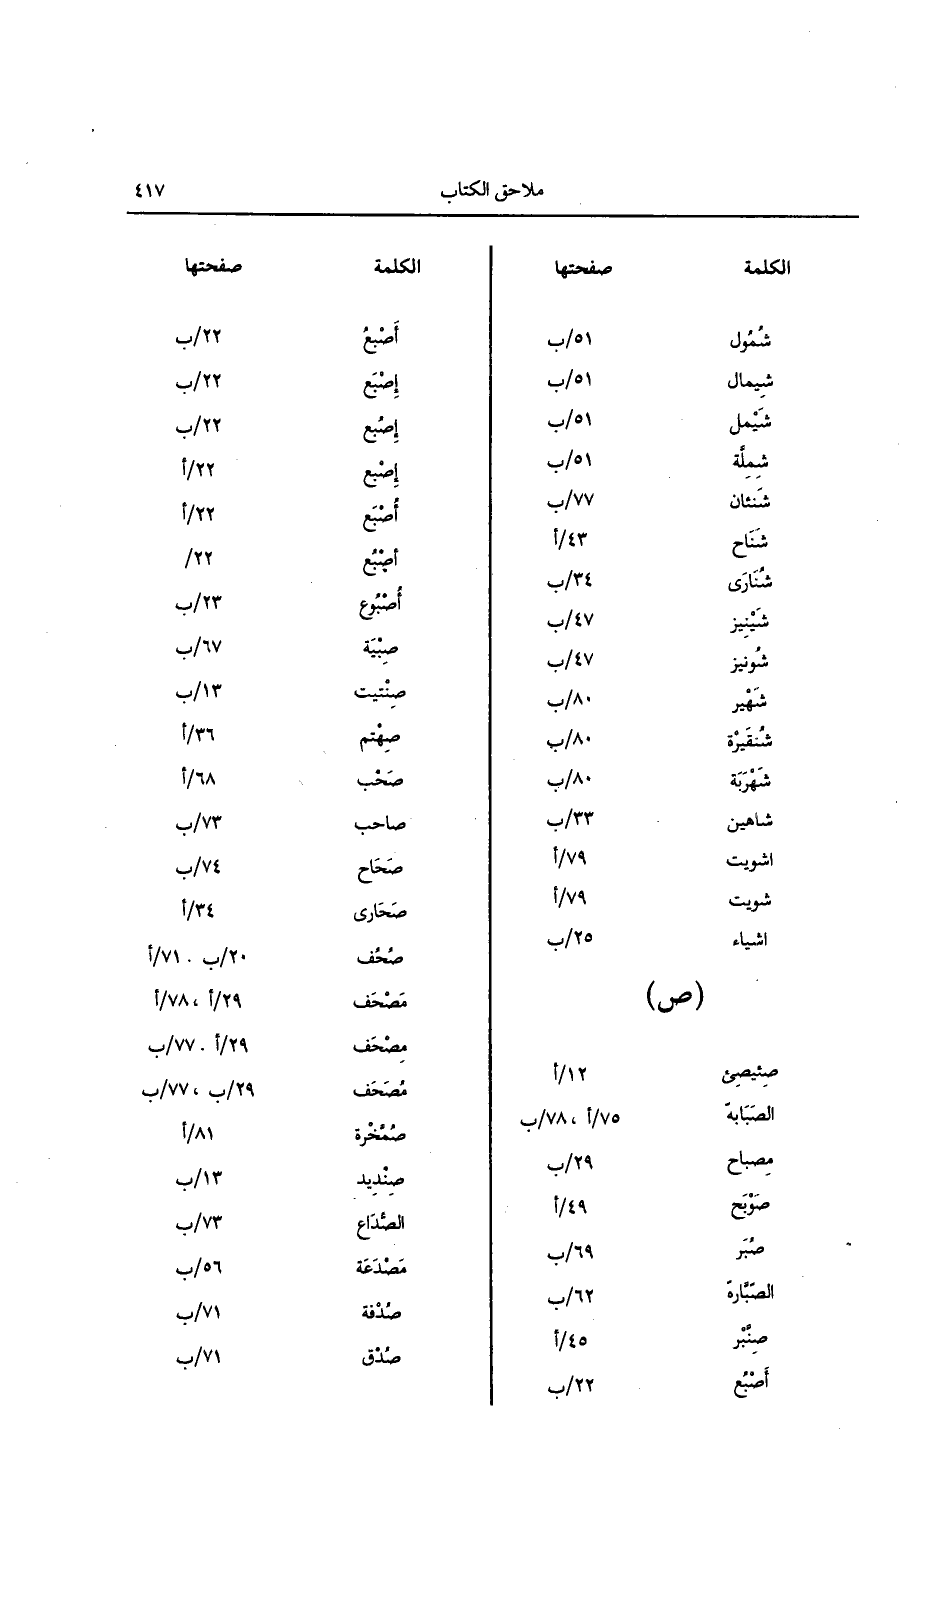 ملاحق الكتاب ٤١٧
الكلمة صفحتها
شُمُول ٥١/ب
شِيمال ٥١/ب
شَيْمل ٥١/ب
شِمِلَّة ٥١/ب
شَنئان ٧٧/ب
شَنَاح ٤٣/أ
شُنَارَى ٣٤/ب
شَيْنِيز ٤٧/ب
شُونيز ٤٧/ب
شَهْير ٨٠/ب
شُنقَيرْة ٨٠/ب
شَهْرَبَة ٨٠/ب
شاهين ٣٣/ب
اشويت ٧٩/أ
شويت ٧٩/أ
اشياء ٢٥/ب
(ص)
صِئيصِئ ١٢/أ
الصَبَابة ٧٥/أ ، ٧٨/ب
مِصباح ٢٩/ب
صَوْبَح ٤٩/أ
صُبَر ٦٩/ب
الصَبَّارة ٦٢/ب
صِنَّبْر ٤٥/أ
أَصْبُع ٢٢/ب
الكلمة صفحتها
أَصْبعُ ٢٢/ب
إِصْبَع ٢٢/ب
إِصُبع ٢٢/ب
إِصْبع ٢٢/أ
أُصْبَع ٢٢/أ
اصْبُع ٢٢/
أُصْبُوع ٢٣/ب
صِبْيَة ٦٧/ب
صِنْتيت ١٣/ب
صِهْتم ٣٦/أ
صَحْب ٦٨/أ
صاحب ٧٣/ب
صَحَاح ٧٤/ب
صَحَارى ٣٤/أ
صُحُف ٢٠/ب . ٧١/أ
مَصْحَف ٢٩/أ ، ٧٨/أ
مِصْحَف ٢٩/أ . ٧٧/ب
مُصَحَف ٢٩/ب ، ٧٧/ب
صُمَّخْرة ٨١/أ
صِنْدِيد ١٣/ب
الصُّدَاع ٧٣/ب
مَصْدَعَة ٥٦/ب
صُدْفة ٧١/ب
صُدْق ٧١/ب